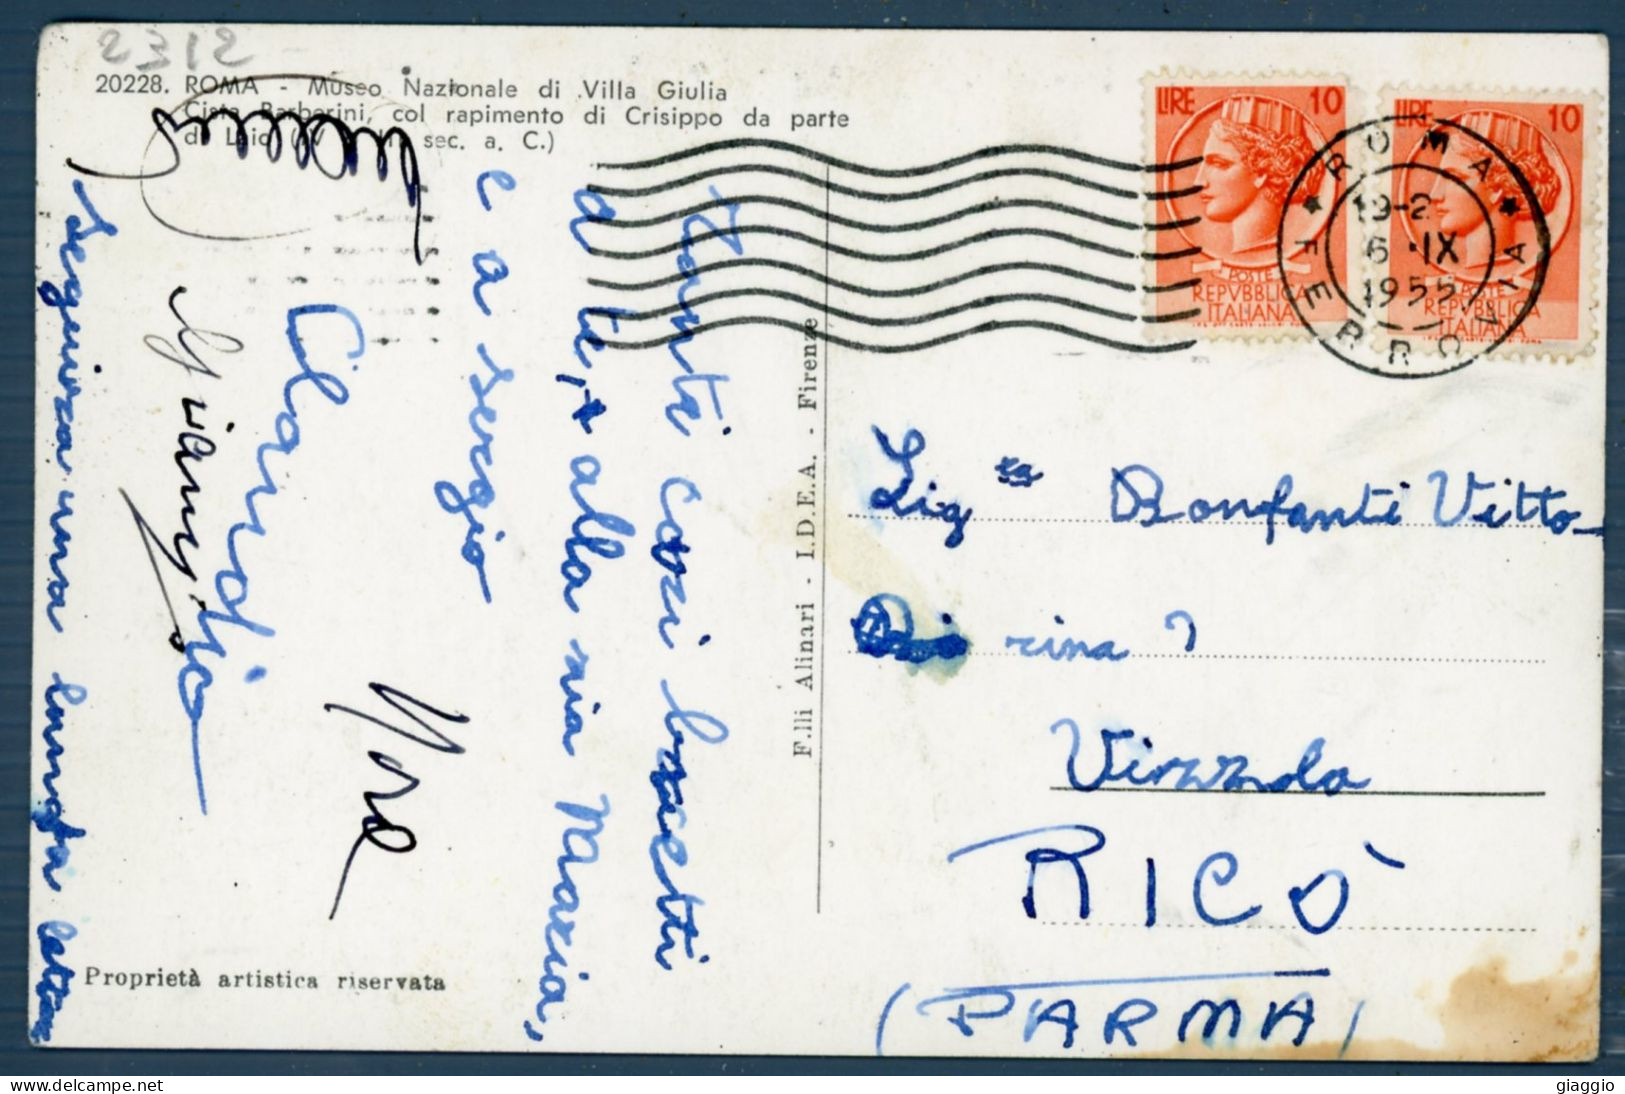 2312
20228. ROMA - Museo Nazionale di Villa Giulia
Cista Barberini, col rapimento di Crisippo da parte
di Laio (IV sec. a. C.)
Tanti cari bacetti
a te, alla mia Maria,
e a Sergio
Claudio
Nora
Seguirà una lunga lettera
Proprietà artistica riservata
F.lli Alinari - I.D.E.A. - Firenze
LIRE 10
POSTE
REPVBBLICA
ITALIANA
LIRE 10
POSTE
REPVBBLICA
ITALIANA
ROMA
FERROVIA
19-2
6 IX
1955
Sig ra Bonfanti Vitto-
rina
Vivazzola
RICÒ
(PARMA)
giaggio